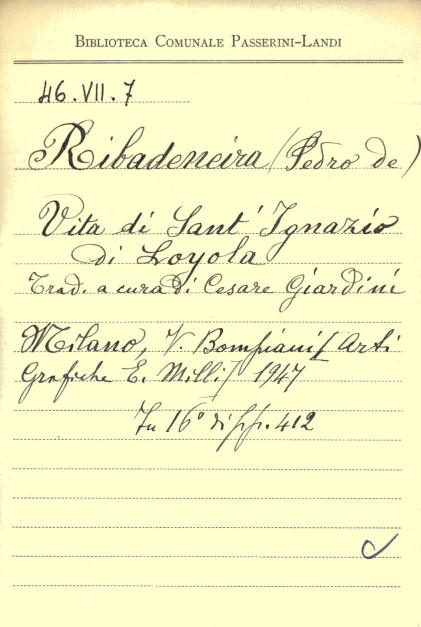 BIBLIOTECA COMUNALE PASSERINI-LANDI
46.VII.7
Ribadeneira (Pedro de)
Vita di Sant' Ignazio
di Loyola
Trad. a cura di Cesare Giardini
Milano, V. Bompiani [Arti
Grafiche E. Milli] 1947
In 16° di pp. 412